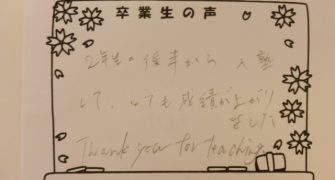 卒業生の声
2年生の後半から 入塾
して、とても成績が上がり
ました
Thank you for teaching